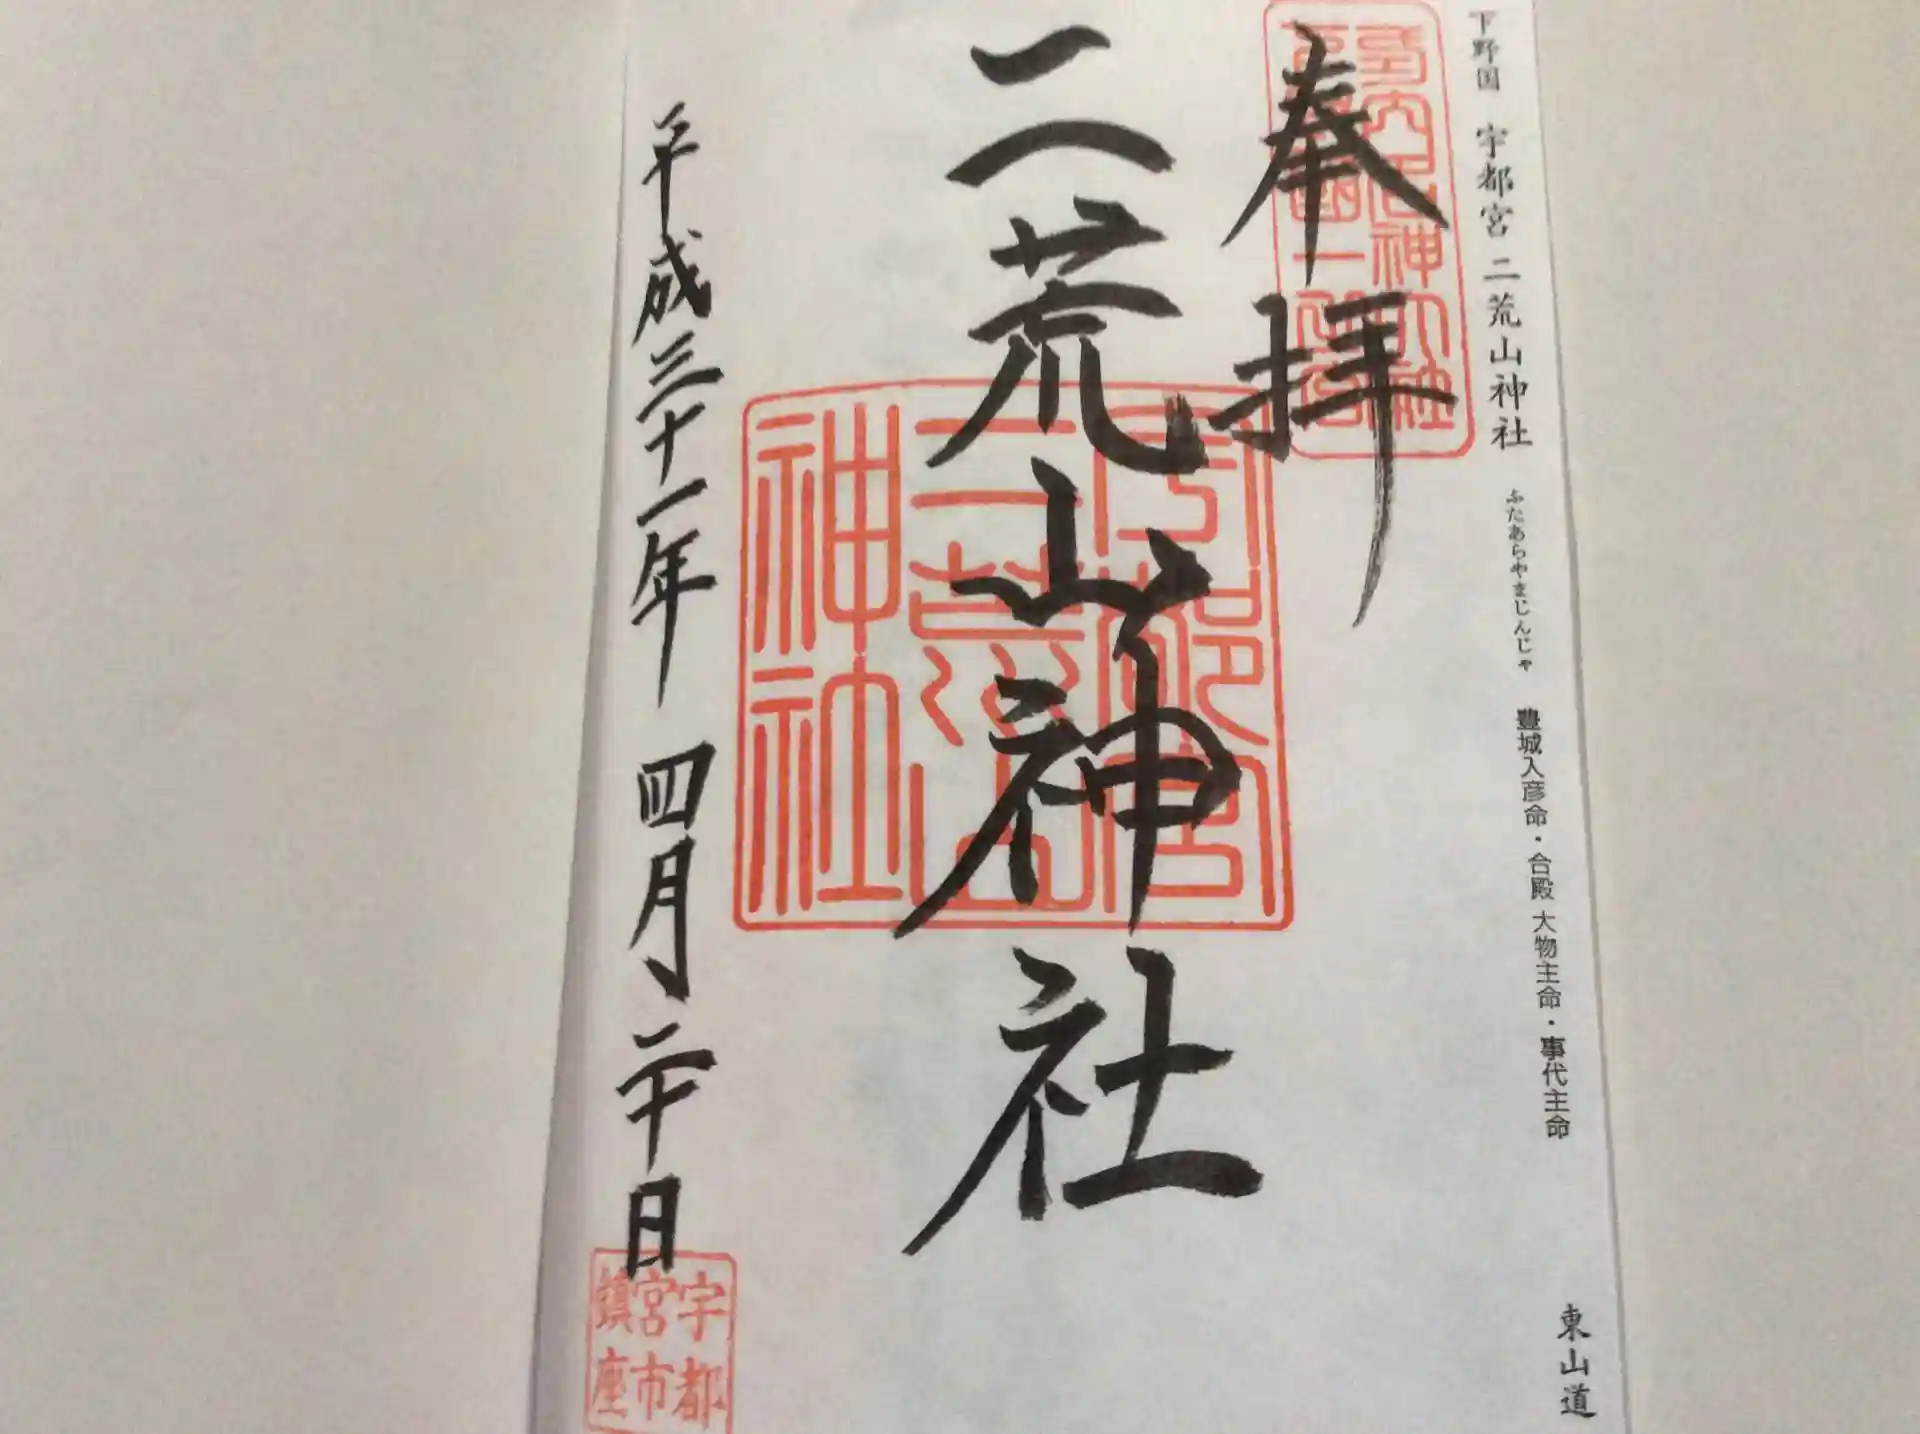 下野国 宇都宮 二荒山神社 ふたあらやまじんじゃ 豊城入彦命・合殿 大物主命・事代主命 東山道
奉拝
二荒山神社
宇都宮
二荒山
神社
平成三十一年 四月二十日
宇都
宮市
鎮座